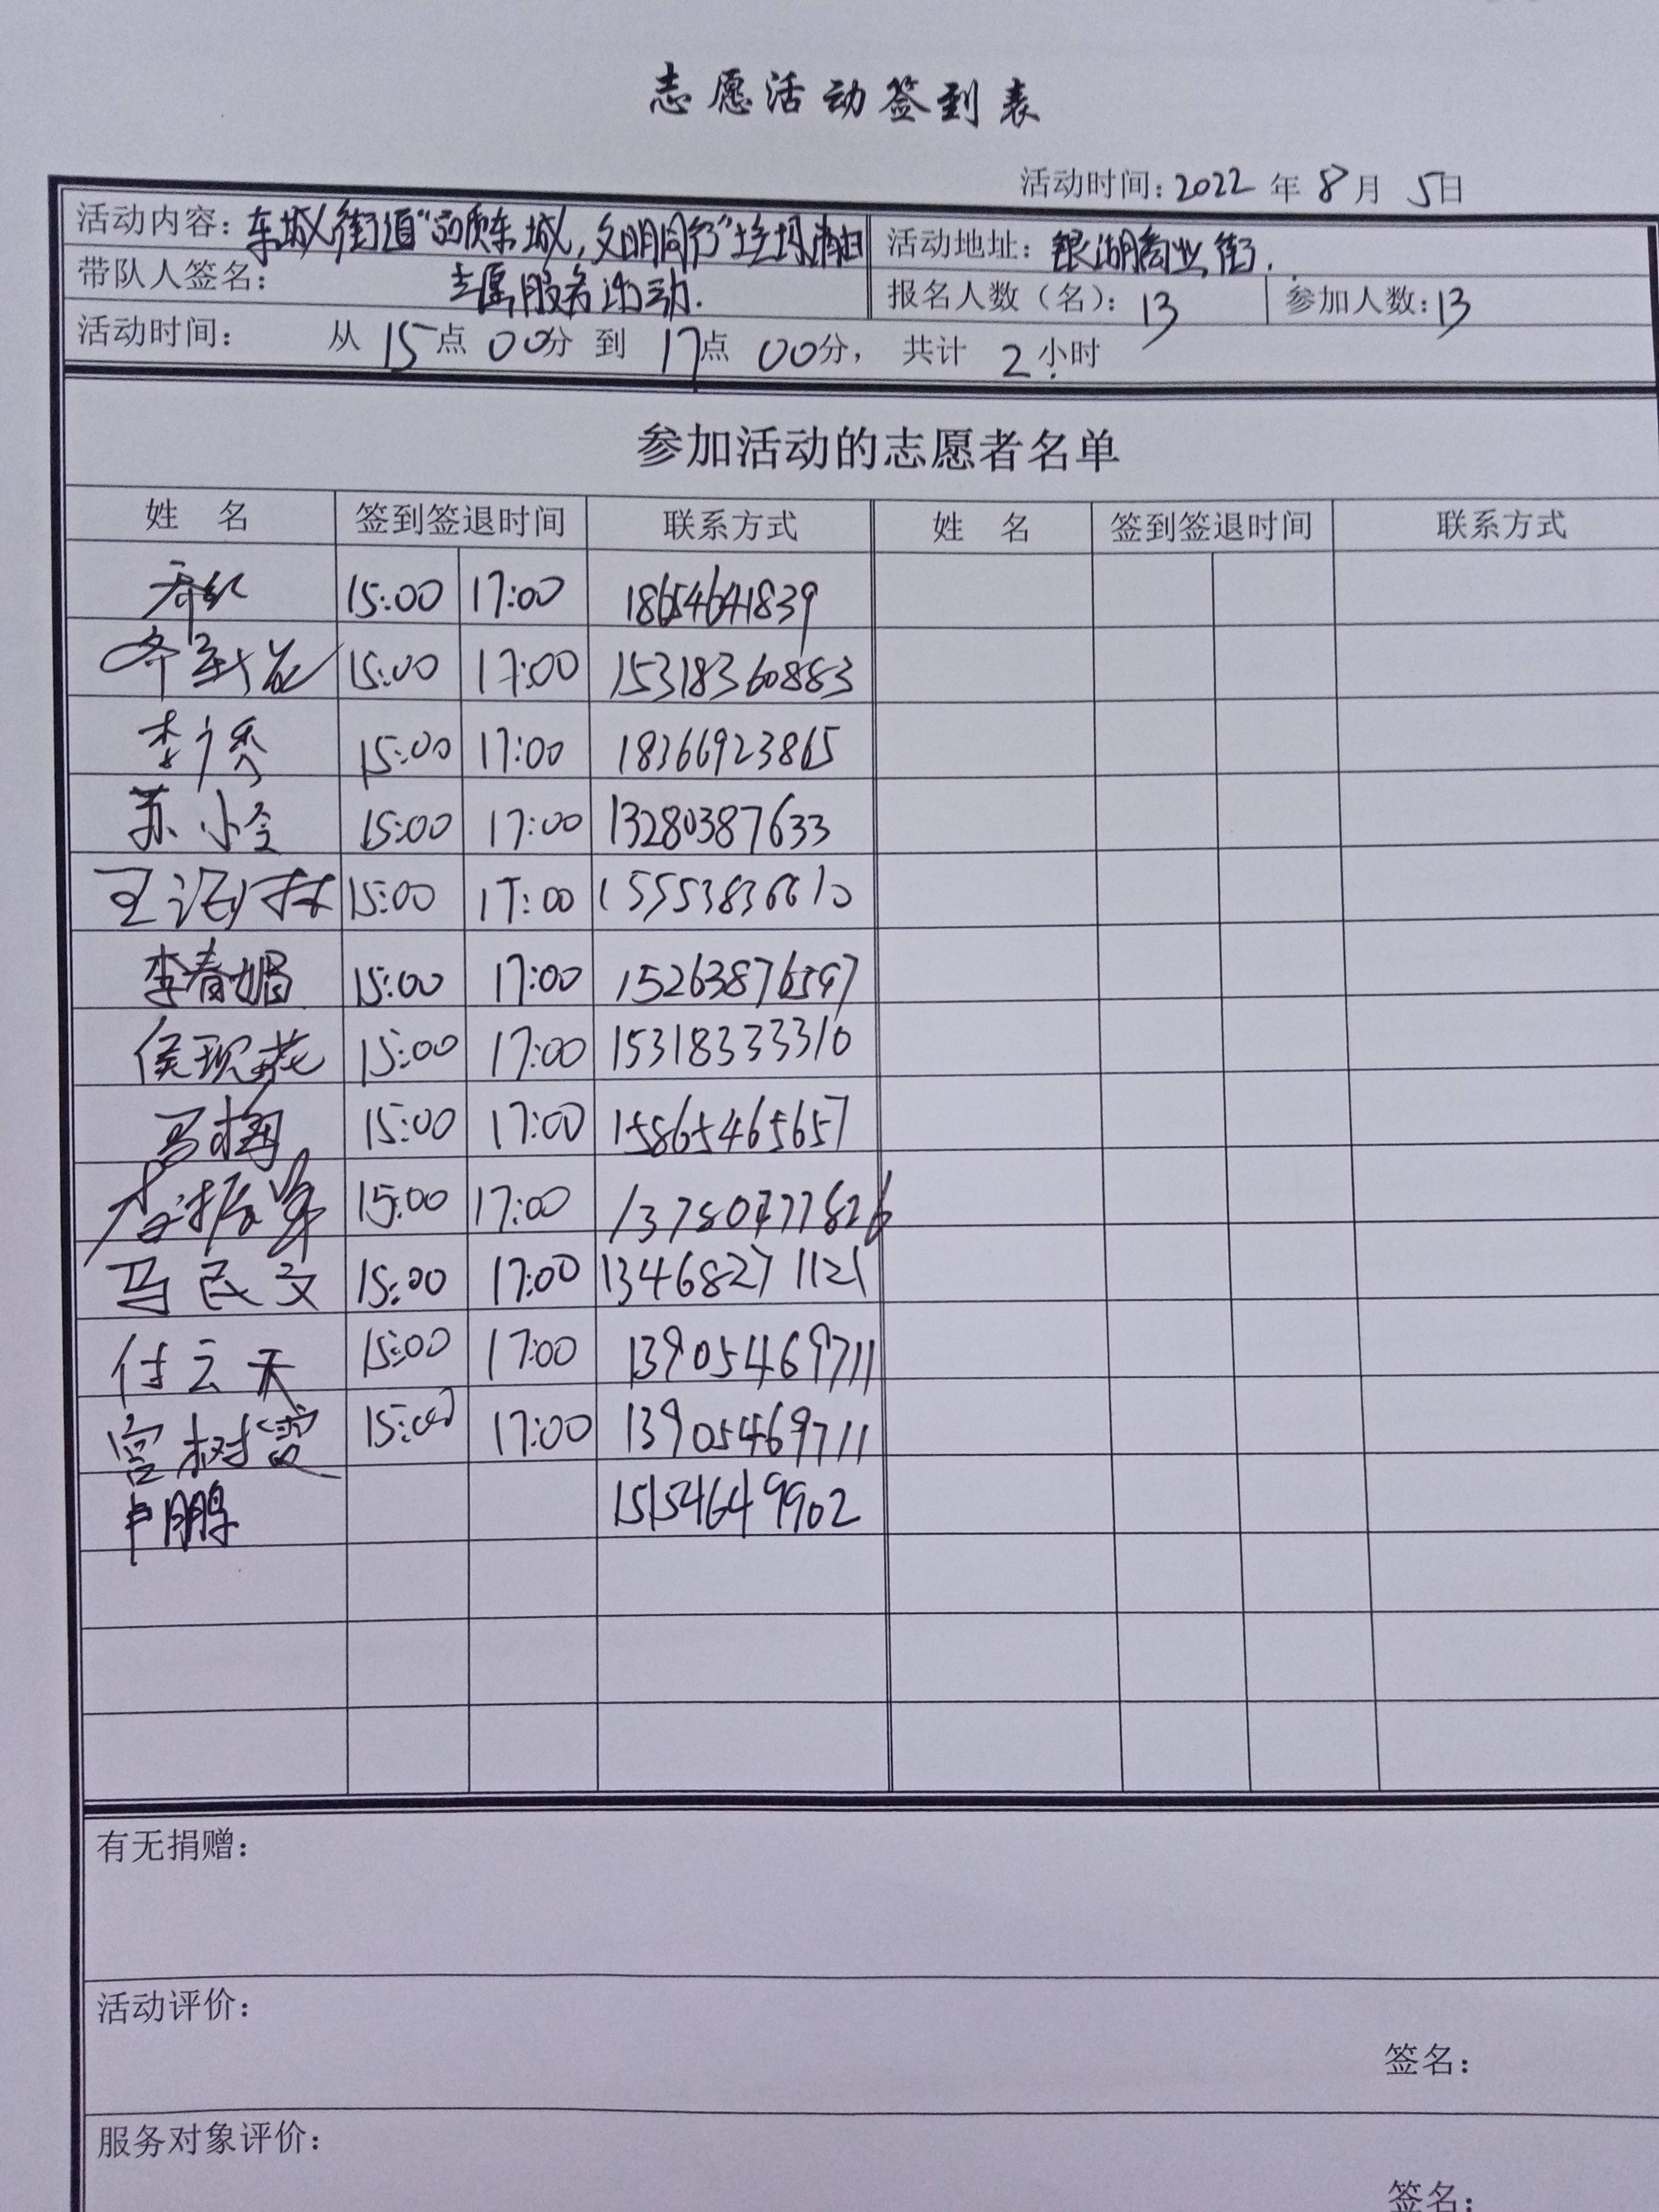 志愿活动签到表
活动时间：2022 年 8 月 5日
活动内容：东城街道“品质东城，文明同行”垃圾清扫 活动地址：银湖商业街.
带队人签名： 志愿服务活动. 报名人数（名）：13 参加人数：13
活动时间： 从 15点 00分 到 17点 00分， 共计 2小时
参加活动的志愿者名单
姓 名 签到签退时间 联系方式 姓 名 签到签退时间 联系方式
15:00 17:00 18654641839
15:00 17:00 15318360883
李 秀 15:00 17:00 18366923865
苏小令 15:00 17:00 13280387633
王 林 15:00 17:00 15553836610
李春娟 15:00 17:00 15263876597
侯现花 15:00 17:00 15318333310
马梅 15:00 17:00 15865465657
15:00 17:00
马民文 15:00 17:00 13468271121
付云天 15:00 17:00 13905469711
宫树霞 15:00 17:00 13905469711
卢鹏 15154649902
有无捐赠：
活动评价：
签名：
服务对象评价：
签名：